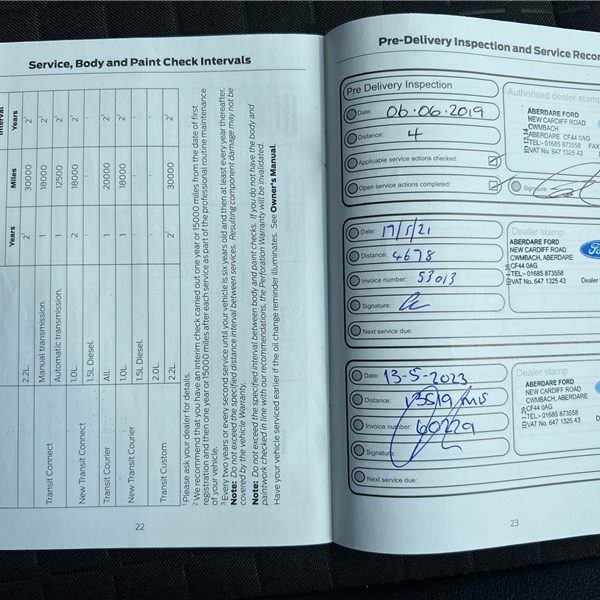 Service, Body and Paint Check Intervals
Interval
Years Miles Years
2.2L 2² 30000 2³
Transit Connect Manual transmission. 1 18000 2³
Automatic transmission. 1 12500 2³
New Transit Connect 1.0L 2 18000 2³
1.5L Diesel. - - -
Transit Courier All. 1 20000 2³
New Transit Courier 1.0L 1 18000 2³
1.5L Diesel. - - -
Transit Custom 2.0L - - -
2.2L 2² 30000 2³
¹ Please ask your dealer for details.
² We recommend that you have an interim check carried out one year or 15000 miles from the date of first
registration and then one year or 15000 miles after each service as part of the professional routine maintenance
of your vehicle.
³ Every two years or every second service until your vehicle is six years old and then at least every year thereafter.
Note: Do not exceed the specified distance interval between services. Resulting component damage may not be
covered by the vehicle Warranty.
Note: Do not exceed the specified interval between body and paint checks. If you do not have the body and
paintwork checked in line with our recommendations, the Perforation Warranty will be invalidated.
Have your vehicle serviced earlier if the oil change reminder illuminates. See Owner's Manual.
22
Pre-Delivery Inspection and Service Recor
Pre Delivery Inspection
Date: 06·06·2019
Distance: 4
Applicable service actions checked:
Open service actions completed:
Authorised dealer stamp
ABERDARE FORD
NEW CARDIFF ROAD
CWMBACH
ABERDARE CF44 0AG
TEL:- 01685 873558 FAX
VAT No. 647 1325 43
Signature:
Date: 17/5/21
Distance: 4678
Invoice number: 53013
Signature:
Next service due:
Dealer stamp
ABERDARE FORD
NEW CARDIFF ROAD
CWMBACH, ABERDARE
CF44 0AG
TEL:- 01685 873558
VAT No. 647 1325 43
Dealer
Date: 13-5-2023
Distance:
Invoice number: 60229
Signature:
Next service due:
Dealer stamp
ABERDARE FORD
NEW CARDIFF ROAD
CWMBACH, ABERDARE
CF44 0AG
TEL:- 01685 873558
VAT No. 647 1325 43
Dealer
23